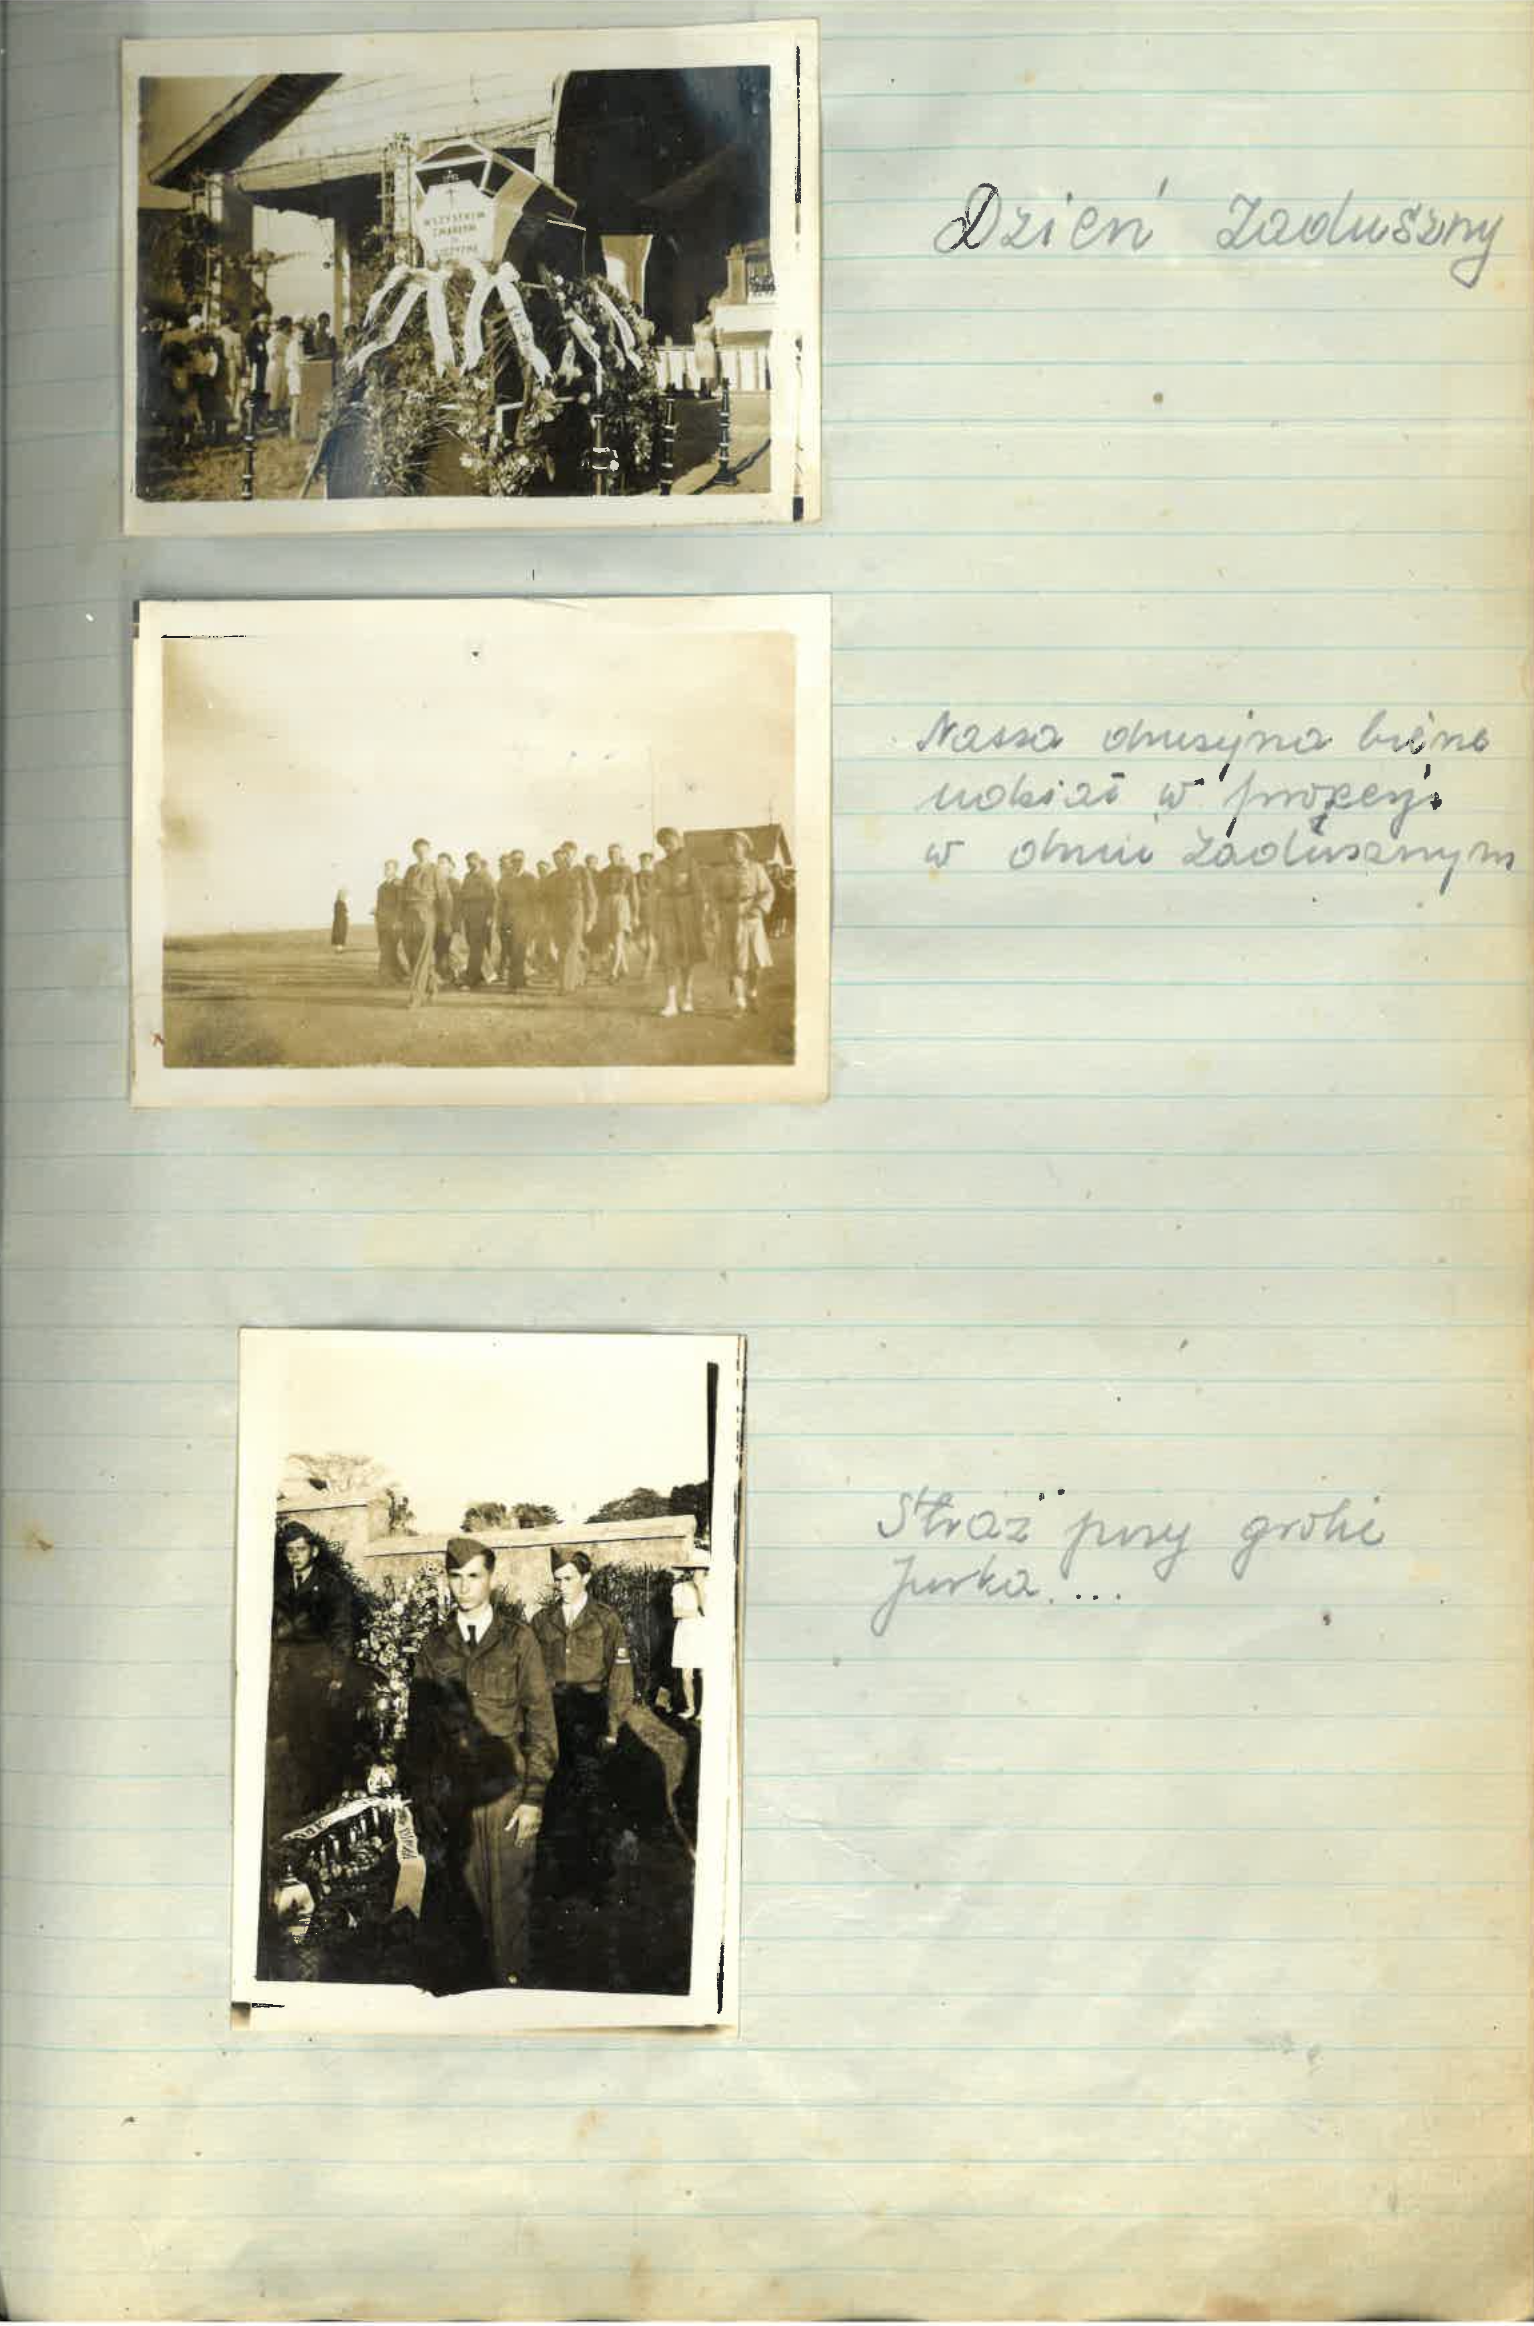 WSZYSTKIM
ZMARŁYM
ZA
OJCZYZNĘ
Dzień Zaduszny
Nasza drużyna bierze
udział w procesji
w dniu Zadusznym
Straż przy grobie
Jurka....